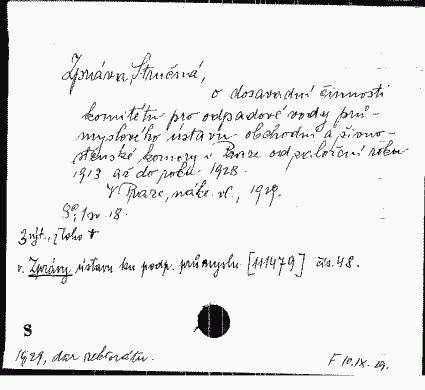 Zpráva, Stručná,
o dosavadní činnosti
komitétu pro odpadové vody prů-
myslového ústavu obchodní a živno-
stenské komory v Praze od založení roku
1913 až do roku 1928.
V Praze, nákl. vl., 1929.
8°, 1 sv. 18.
3 výt., z toho
v. Zprávy ústavu ku podp. průmyslu [111479] čís. 48.
S
1929, dar rektorátu.
F 10.IX.29.